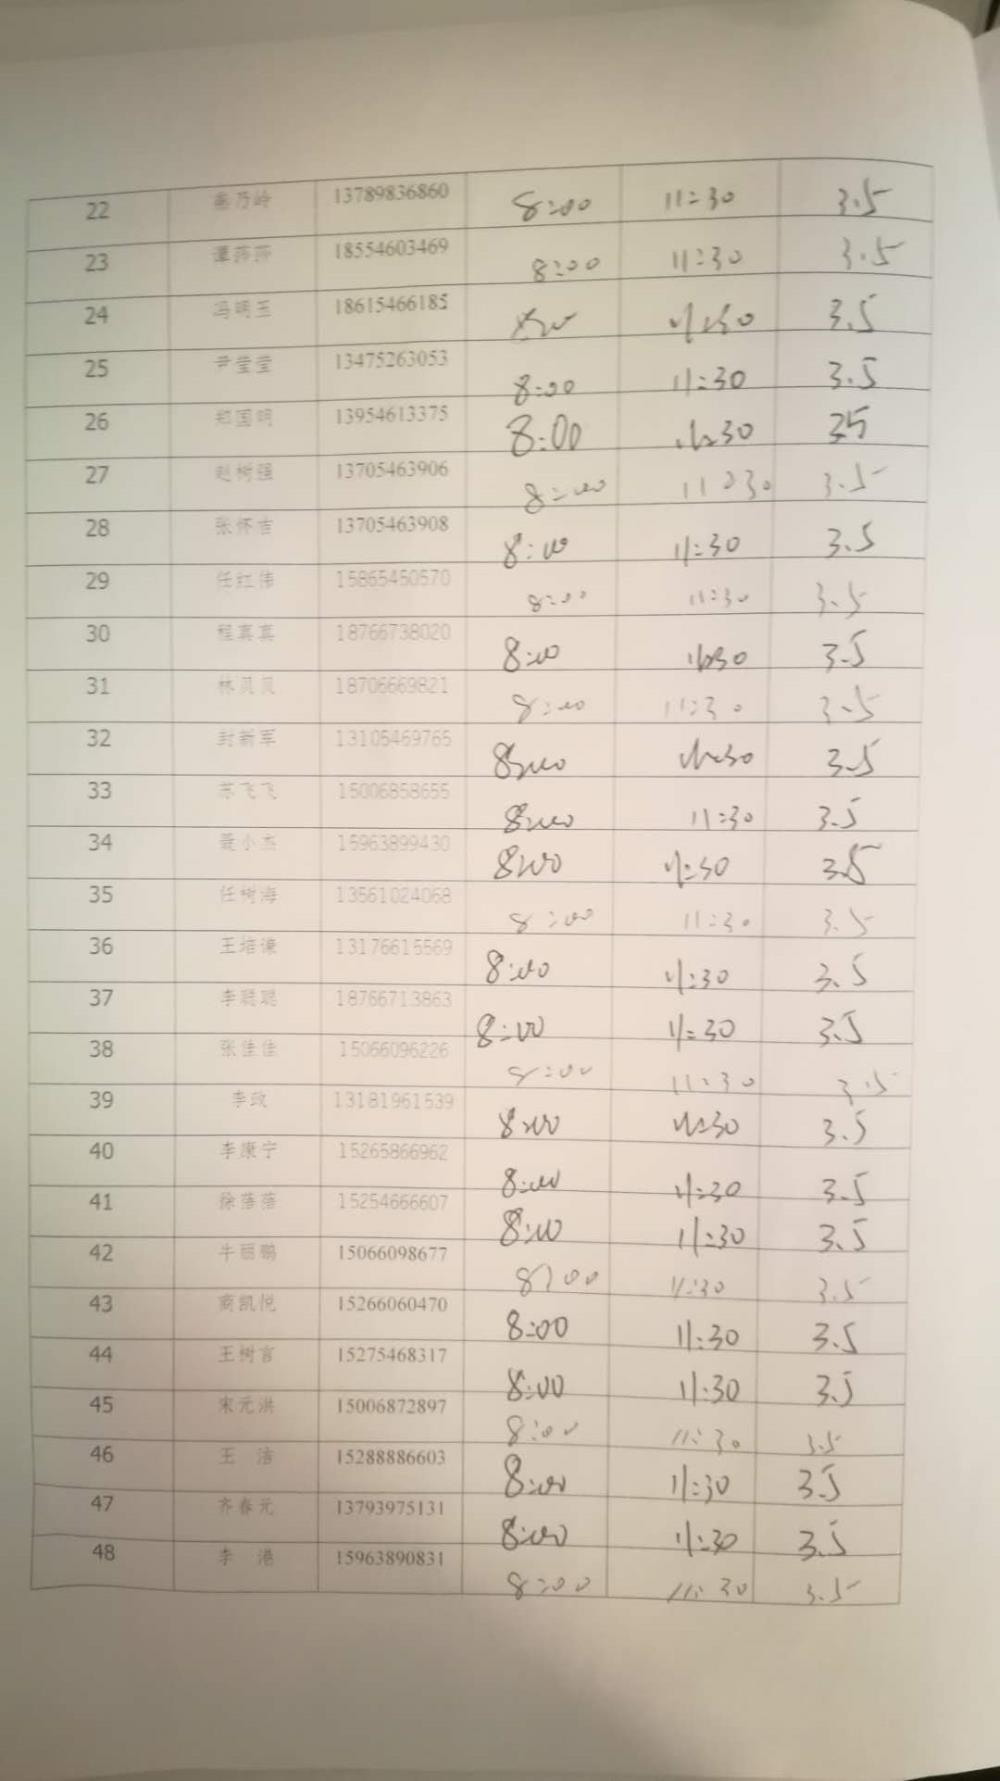 22 燕乃岭 13789836860 8:00 11:30 3.5
23 谭莎莎 18554603469 8:00 11:30 3.5
24 冯明玉 18615466185 8:00 11:30 3.5
25 尹莹莹 13475263053 8:00 11:30 3.5
26 郑国明 13954613375 8:00 11:30 35
27 赵树强 13705463906 8:00 11:30 3.5
28 张怀吉 13705463908 8:00 11:30 3.5
29 任红伟 15865450570 8:00 11:30 3.5
30 程真真 18766738020 8:00 11:30 3.5
31 林贝贝 18706669821 8:00 11:30 3.5
32 封新军 13105469765 8:00 11:30 3.5
33 苏飞飞 15006858655 8:00 11:30 3.5
34 聂小杰 15963899430 8:00 11:30 3.5
35 任树海 13561024068 8:00 11:30 3.5
36 王培谦 13176615569 8:00 11:30 3.5
37 李聪聪 18766713863 8:00 11:30 3.5
38 张佳佳 15066096226 8:00 11:30 3.5
39 李政 13181961539 8:00 11:30 3.5
40 李康宁 15265866962 8:00 11:30 3.5
41 徐蓓蓓 15254666607 8:00 11:30 3.5
42 牛丽鹏 15066098677 8:00 11:30 3.5
43 商凯悦 15266060470 8:00 11:30 3.5
44 王树言 15275468317 8:00 11:30 3.5
45 宋元洪 15006872897 8:00 11:30 3.5
46 王 洁 15288886603 8:00 11:30 3.5
47 齐春元 13793975131 8:00 11:30 3.5
48 李 港 15963890831 8:00 11:30 3.5